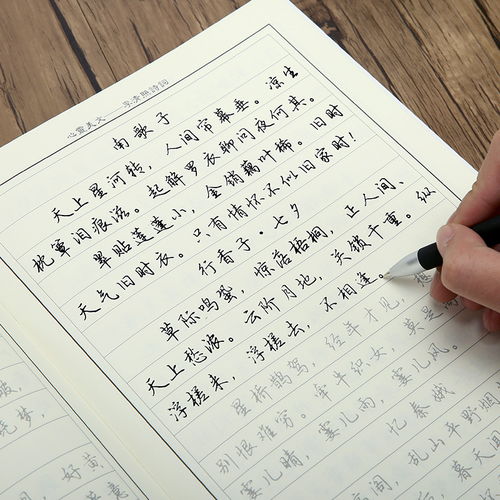 心靈美文 李清照詩詞
南歌子
天上星河转，人间帘幕垂。凉生
枕簟泪痕滋。起解罗衣聊问夜何其。
翠贴莲蓬小，金销藕叶稀。旧时
天气旧时衣。只有情怀不似旧家时！
行香子·七夕
草际鸣蛩，惊落梧桐，正人间、
天上愁浓。云阶月地，关锁千重。纵
浮槎来，浮槎去，不相逢。
星桥鹊驾，经年才见，想
别恨难穷。牵牛织女，莫是
霎儿晴，霎儿雨，霎儿风。
忆秦娥
高阁，乱山平野烟
暮天
好黄